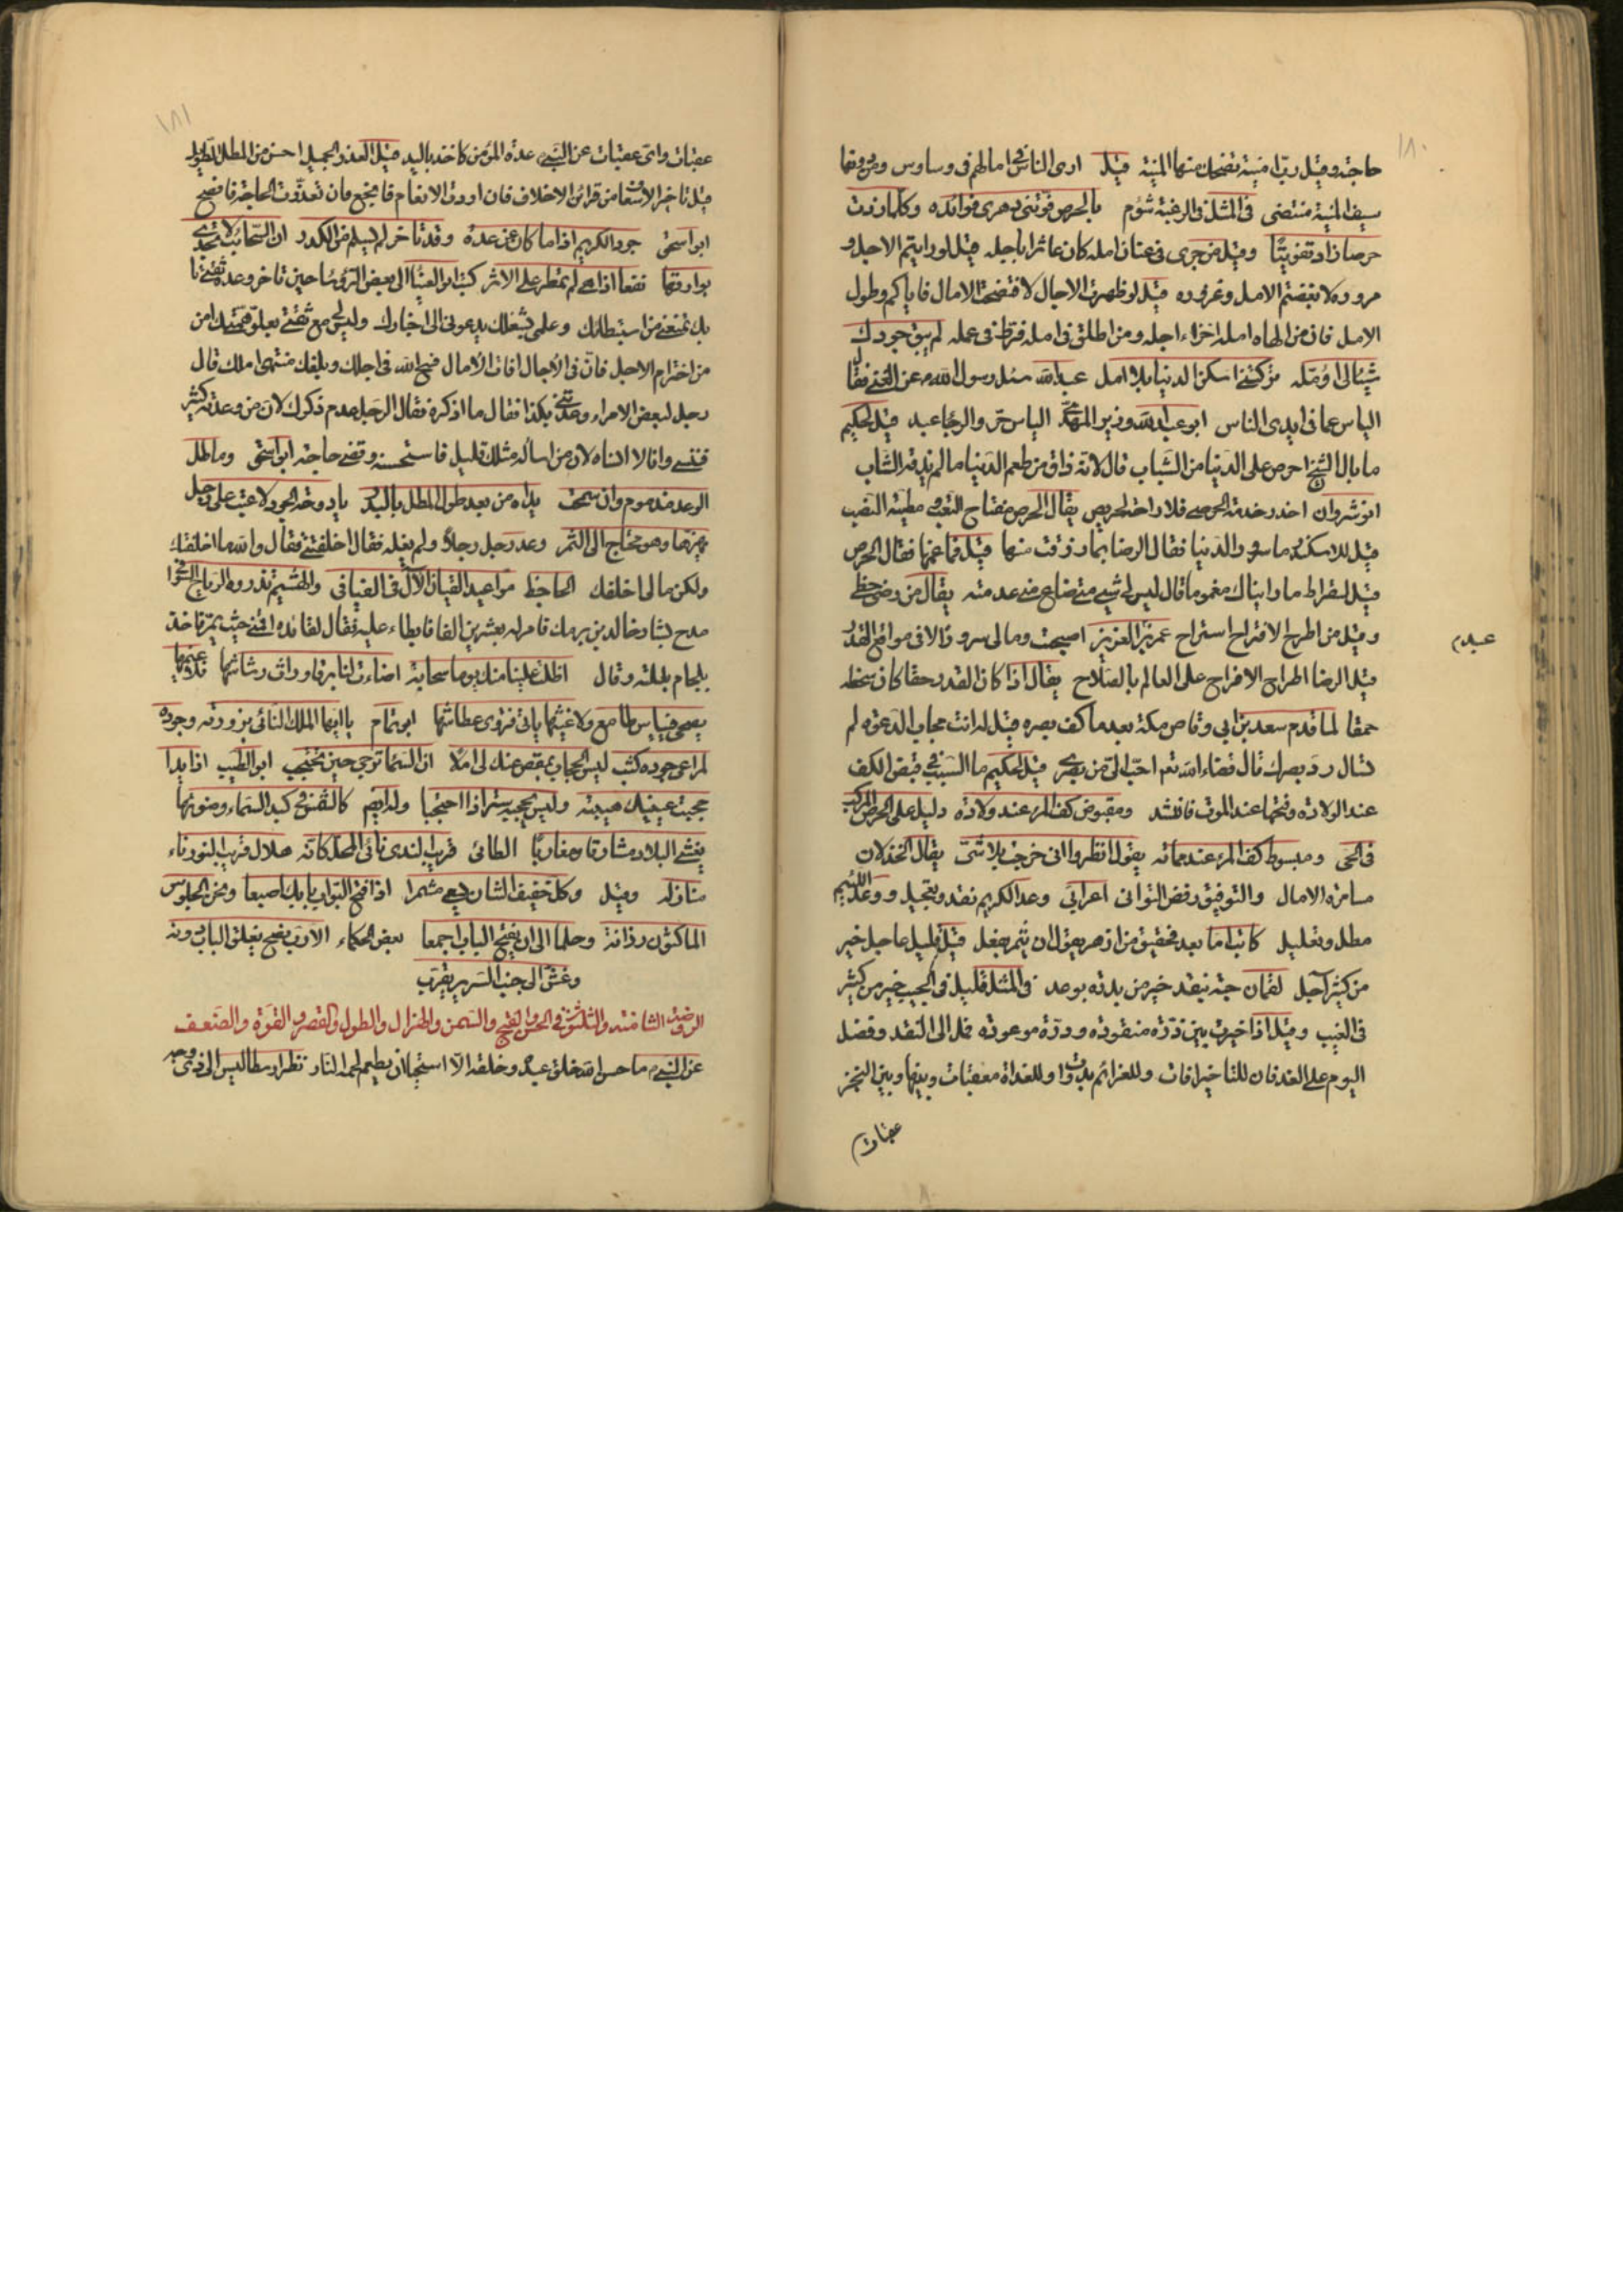 ١٨٠
حاجته وقيل رب امنية تضحك منها المنية قيل ارى الناس في امالهم في وساوس ومن دونها
سيف المنية منتضى في المثل في الرغبة شوم بالحرص فوتني دهرى فوائده وكلما زدت
حرصا زاد تفويتا وقيل من جرى في عنان امله كان عاثرا باجله قيل لو رايتم الاجل و
مروره لابغضتم الامل وغروره قيل لو ظهرت الاجال لافتضحت الامال فاياكم وطول
الامل فان من الهاه امله اخزاه اجله ومن اطلق في امله فرط في عمله لم يبق جودك
شيئا اؤمله تركتني اسكن الدنيا بلا امل عبد الله سئل رسول الله عن الغنى فقال
الياس عما في ايدى الناس ابو عبيد الله وزير المهدى الياس حر والرجا عبد قيل لحكيم
ما بال الشيخ احرص على الدنيا من الشباب قال لانه ذاق من طعم الدنيا ما لم يذقه الشاب
انوشروان احذر خدمة الحرص فلا راحة لحريص يقال الحرص مفتاح التعب ومطية النصب
قيل للاسكندر ما سرور الدنيا فقال الرضا بما رزقت منها قيل فما غمها فقال الحرص
قيل لسقراط ما رايناك مغموما قال ليس لي شيء متى ضاع مني عدمته يقال من رضى حظى
وقيل من اطرح الاقتراح استراح عمر بن عبد العزيز اصبحت ومالي سرور الا في مواقع القدر
قيل الرضا اطراح الاقتراح على العالم بالصلاح يقال اذا كان القدر حقا كان سخطه
حمقا لما قدم سعد بن ابي وقاص مكة بعد ما كف بصره قيل له انت مجاب الدعوة لم
لا تسال رد بصرك قال قضاء الله تعم احب الي من بصرى قيل لحكيم ما السبب في قبض الكف
عند الولادة وفتحها عند الموت فانشد ومقبوض كف المرء عند ولادة دليل على الحرص المركب
في الحى ومبسوط كف المرء عند مماته يقول انظروا اني خرجت بلا شى يقال الخذلان
مسامرة الامال والتوفيق رفض التواني اعرابي وعد الكريم نقد وتعجيل ووعد اللئيم
مطل وتعليل كاتب اما بعد فحقيق من ازهر بقول ان يثمر بفعل قيل قليل عاجل خير
من كثير آجل لقمان حبة بنقد خير من بدرة بوعد في المثل قليل في الجيب خير من كثير
في الغيب وقيل اذا خيرت بين ذرة منقودة ودرة موعودة فمل الى النقد وفضل
اليوم على الغد فان للتاخير افات وللعزائم بدوات وللعداة معقبات وبينها وبين النجز
عقبات
عبد
١٨١
عقبات واى عقبات عن النبي عدة المؤمن كاخذ باليد قيل العذر الجميل احسن من المطل الطويل
قيل تاخير الاسعاف من قرائن الاخلاف فان اردت الانعام فانجح وان تعذرت الحاجة فافصح
ابو اسحق جود الكريم اذا ما كان عن عدة وقد تاخر لم يسلم من الكدر ان السحائب لا تجدى
بوارقها نفعا اذا هي لم تمطر على الاثر كتب ابو العيناء الى بعض الرؤسا حين تاخر وعده ثقتي
بك تمنعني من استبطائك وعلمي بشغلك يدعوني الى اخبارك وليس مع ثقتي بعلو همتك امن
من اخترام الاجل فان في الآجال افات الآمال فسح الله في اجلك وبلغك منتهى املك قال
رجل لبعض الامراء وعدتني بكذا فقال ما اذكره فقال الرجل عدم ذكرك لان من وعدته كثير
فنسي وانا لا انساه لان من اساله مثلك قليل فاستحسنه وقضى حاجته ابو اسحق وماطل
الوعد مذموم وان سمحت يداه من بعد طول المطل بالبدر يا دوحة الجود لا عتب على رجل
يهزها وهو محتاج الى الثمر وعد رجل رجلا ولم يف له فقال اخلفتني فقال والله ما اخلفتك
ولكن مالي اخلفك الجاحظ مواعيد القيان الآل في الفيافي والهشيم تذروه الرياح
مدح بشار خالد بن برمك فامر له بعشرين الفا فابطاء عليه فقال لقائده اقمني حيث يمر فاخذ
بلجام بغلته وقال اظلت علينا منك يوما سحابة اضاءت لنا برقا وراث رشاشها فلا غيمها
يصحي فيياس طامع ولا غيثها ياتي فتروى عطاشها ابو تمام يا ايها الملك النائى بزورته وجوده
لمراعي جوده كثب ليس الحجاب بمقص عنك لي املا ان السما ترجى حين تحتجب ابو الطيب اذا بدا
حجبت عينيك هيبته وليس يحجبه ستر اذا احتجبا وله ايضم كالشمس في كبد السماء وضوئها
يغشى البلاد مشارقا ومغاربا الطائى قريب الندى نائى المحل كانه هلال قريب النور ناء
منازله وقيل وكل خفيف الشان يسعى مشمرا اذا فتح البواب بابك اصبعا ونحن الجلوس
الماكثون رزانة وحلما الى ان يفتح الباب اجمعا بعض الحكماء الارب يفتح بغلق الباب دونه
وغش الى جنب السرير يقرب
الروضة الثامنة والثلثون في الحسن والقبح والسمن والهزال والطول والقصر والقوة والضعف
عن النبي ما حسن الله خلق عبد وخلقه الا استحيا ان يطعم لحمه النار نظر ارسطاليس الى ذى وجه